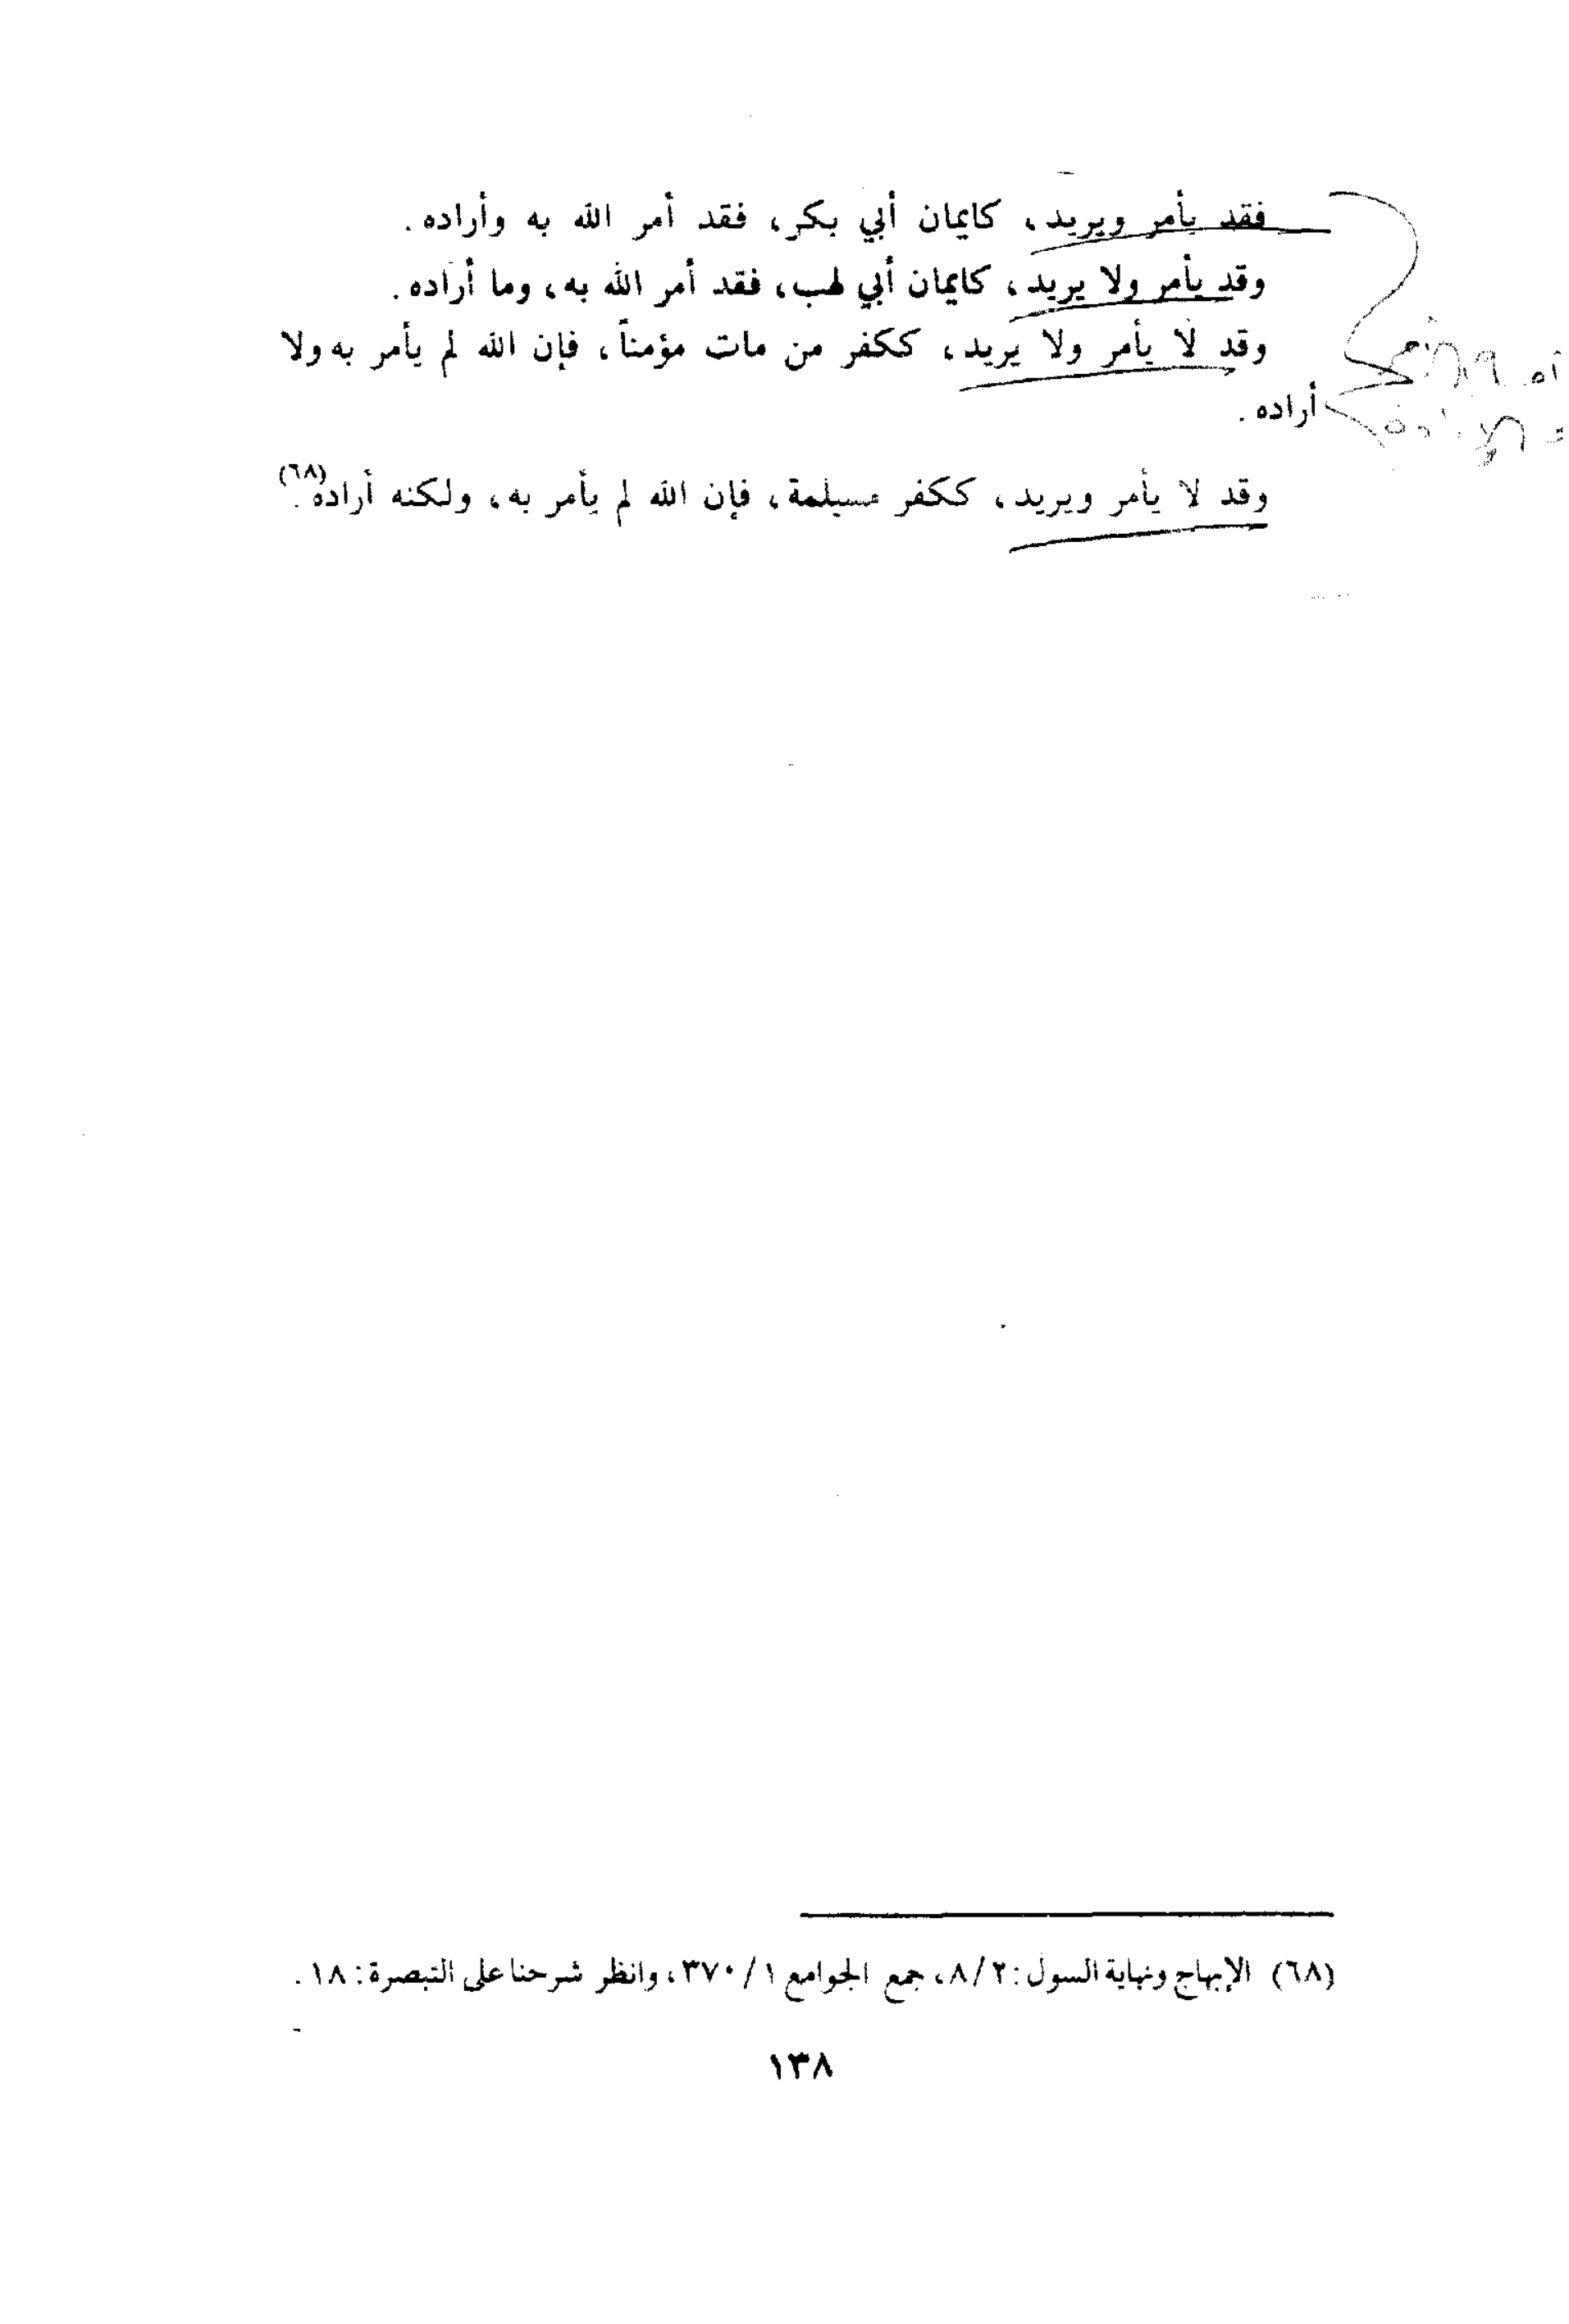 فقد يأمر ويريد، كايمان أبي بكر، فقد أمر الله به وأراده.
وقد يأمر ولا يريد، كايمان أبي لهب، فقد أمر الله به، وما أراده.
وقد لا يأمر ولا يريد، ككفر من مات مؤمناً، فإن الله لم يأمر به ولا
أراده.
وقد لا يأمر ويريد، ككفر مسيلمة، فإن الله لم يأمر به، ولكنه أراده(٦٨).
(٦٨) الإبهاج ونهاية السول: ٨/٢، جمع الجوامع ٣٧٠/١، وانظر شرحنا على التبصرة: ١٨.
١٣٨